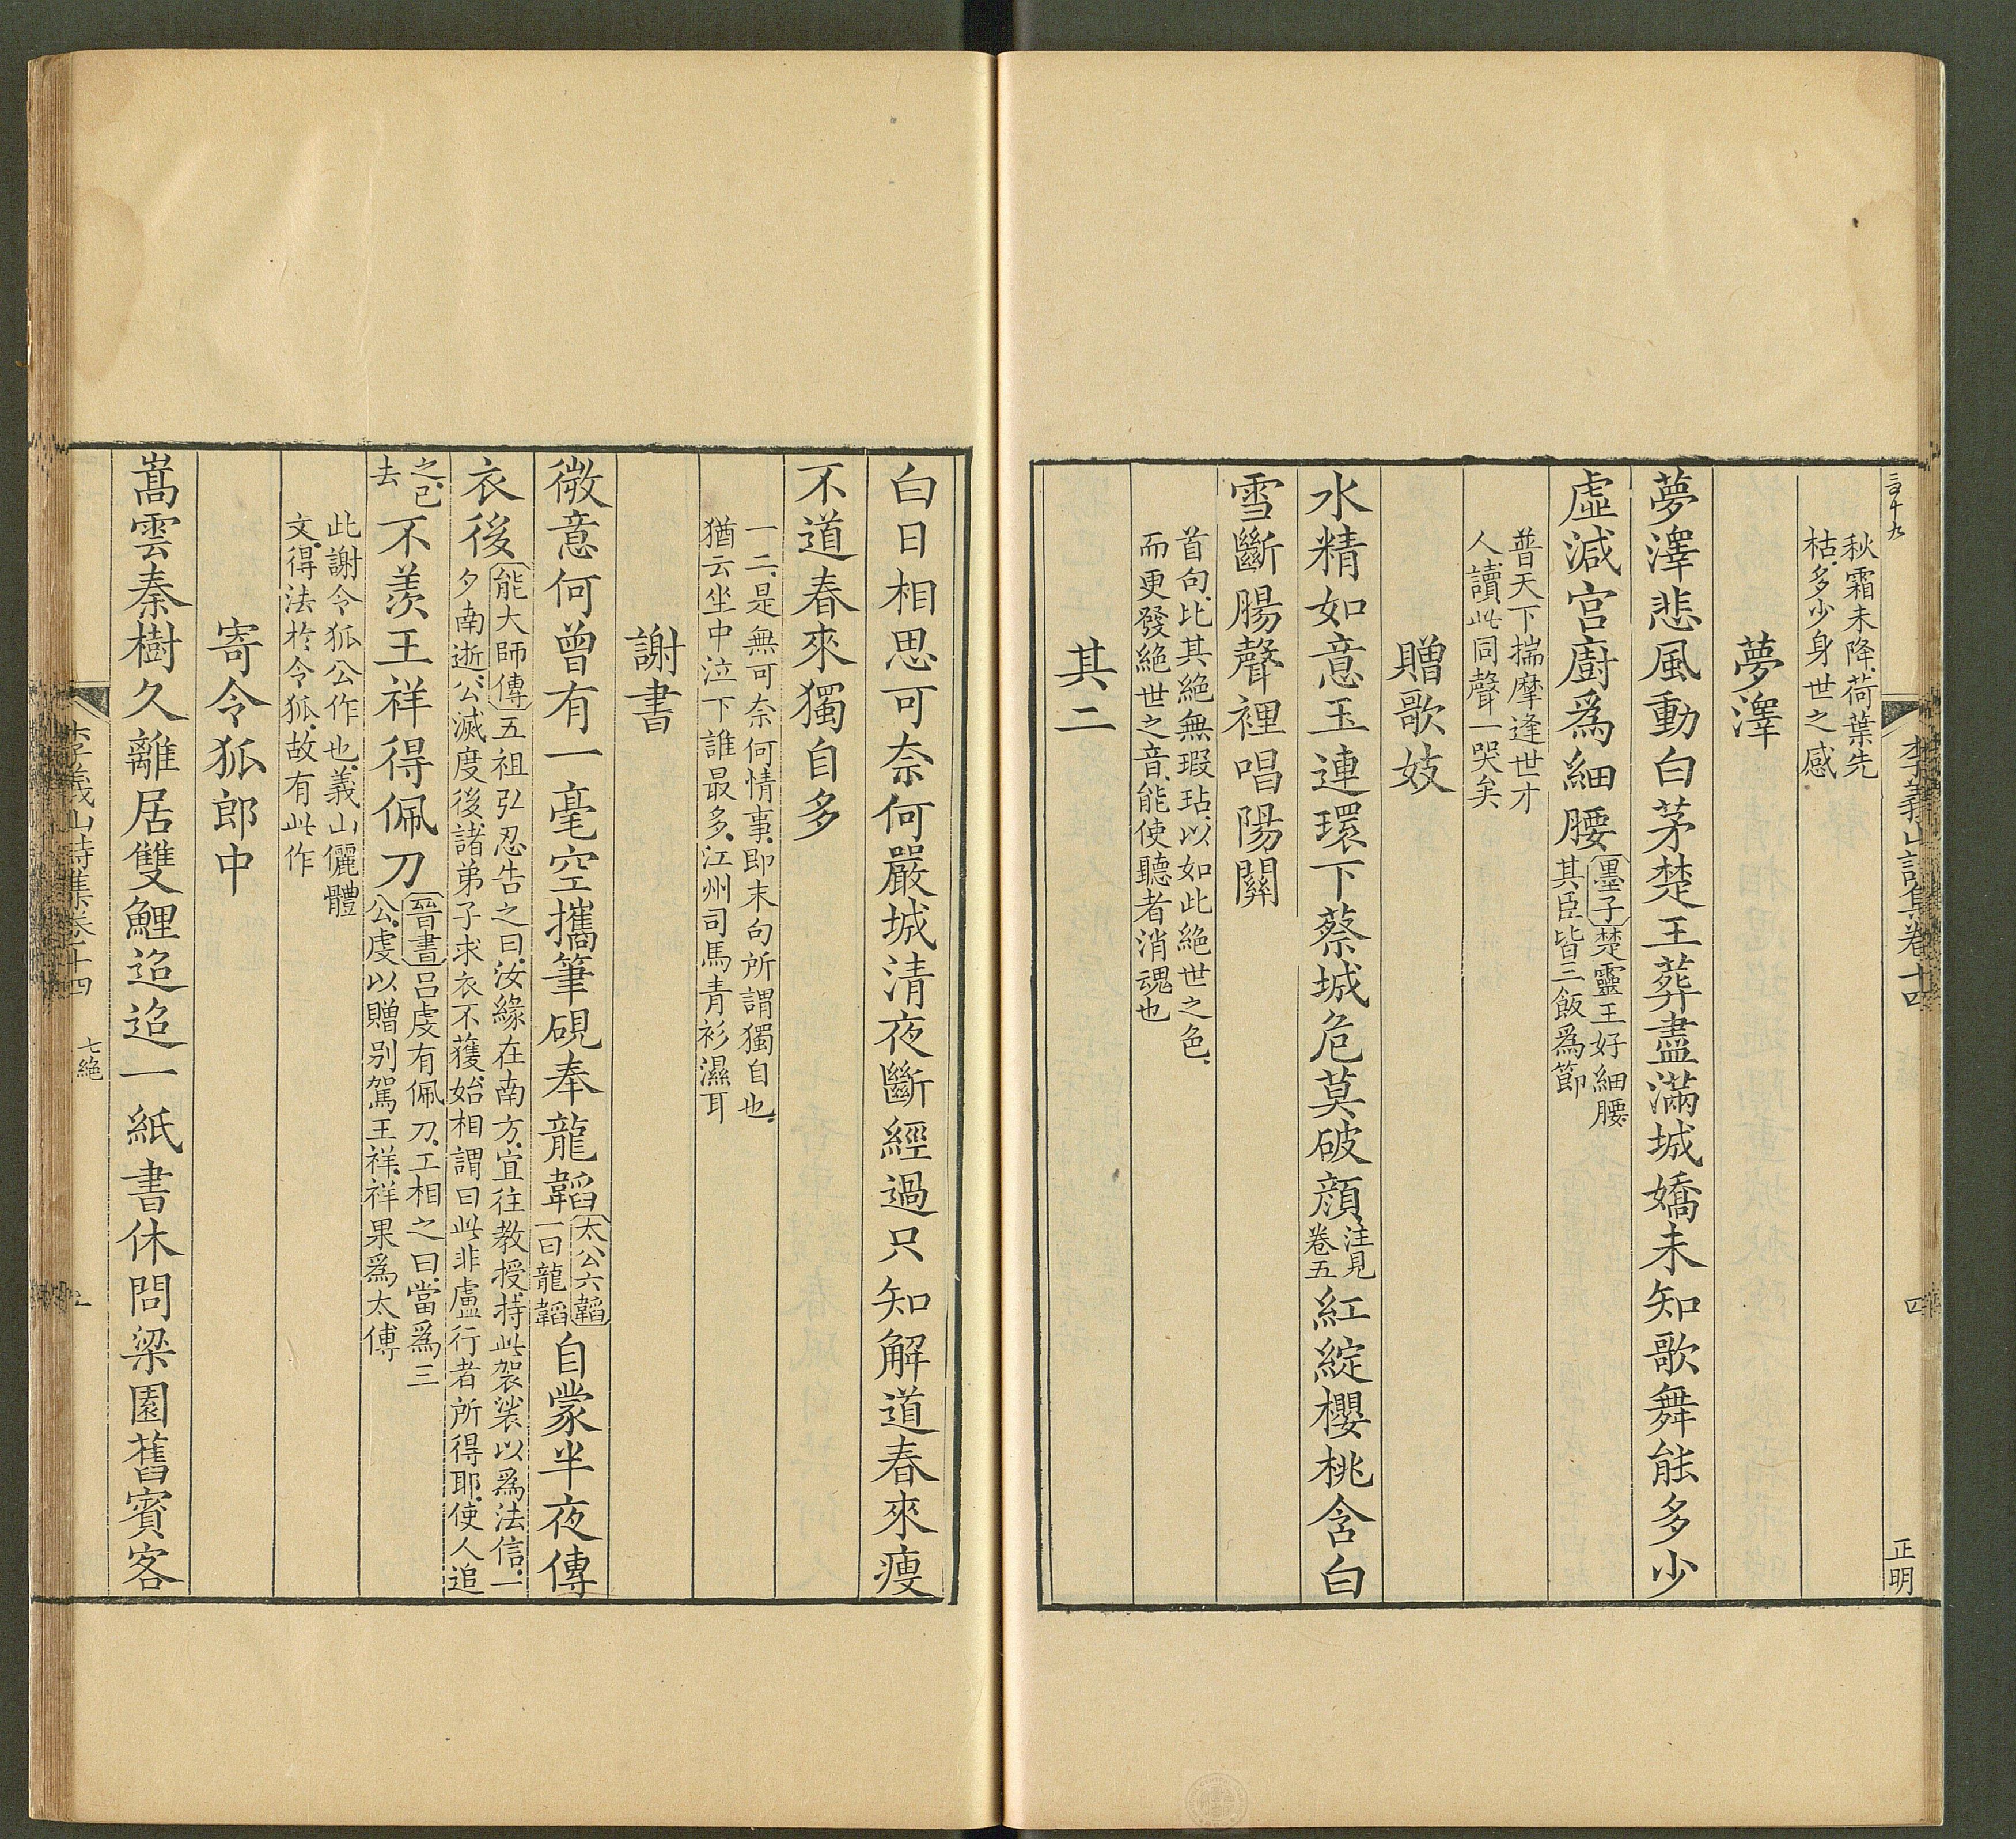 李義山詩集卷十四
四
正明
秋霜未降、荷葉先
枯、多少身世之感
夢澤
夢澤悲風動白茅楚王葬盡滿城嬌未知歌舞能多少
虛減宮廚爲細腰
墨子楚靈王好細腰、
其臣皆三飯爲節
普天下揣摩逢世才
人、讀此同聲一哭矣
贈歌妓
水精如意玉連環下蔡城危莫破顔
注見
卷五
紅綻櫻桃含白
雪斷腸聲裡唱陽關
首句、比其絕無瑕玷、以如此絕世之色、
而更發絕世之音、能使聽者消魂也
其二
白日相思可奈何嚴城清夜斷經過只知解道春來瘦
不道春來獨自多
一二、是無可奈何情事、即末句所謂獨自也、
猶云坐中泣下誰最多、江州司馬青衫濕耳
謝書
微意何曾有一毫空攜筆硯奉龍韜
太公六韜
一曰龍韜
自蒙半夜傳
衣後
能大師傳五祖弘忍告之曰、汝緣在南方、宜往教授、持此袈裟以爲法信、一
夕南逝、公滅度後諸弟子求衣不獲、始相謂曰、此非盧行者所得耶、使人追
之、已
去
不羨王祥得佩刀
晉書吕虔有佩刀、工相之曰、當爲三
公、虔以贈别駕王祥、祥果爲太傅
此謝令狐公作也、義山儷體
文、得法於令狐、故有此作
寄令狐郎中
嵩雲秦樹久離居雙鯉迢迢一紙書休問梁園舊賓客
李義山詩集卷十四
七絕